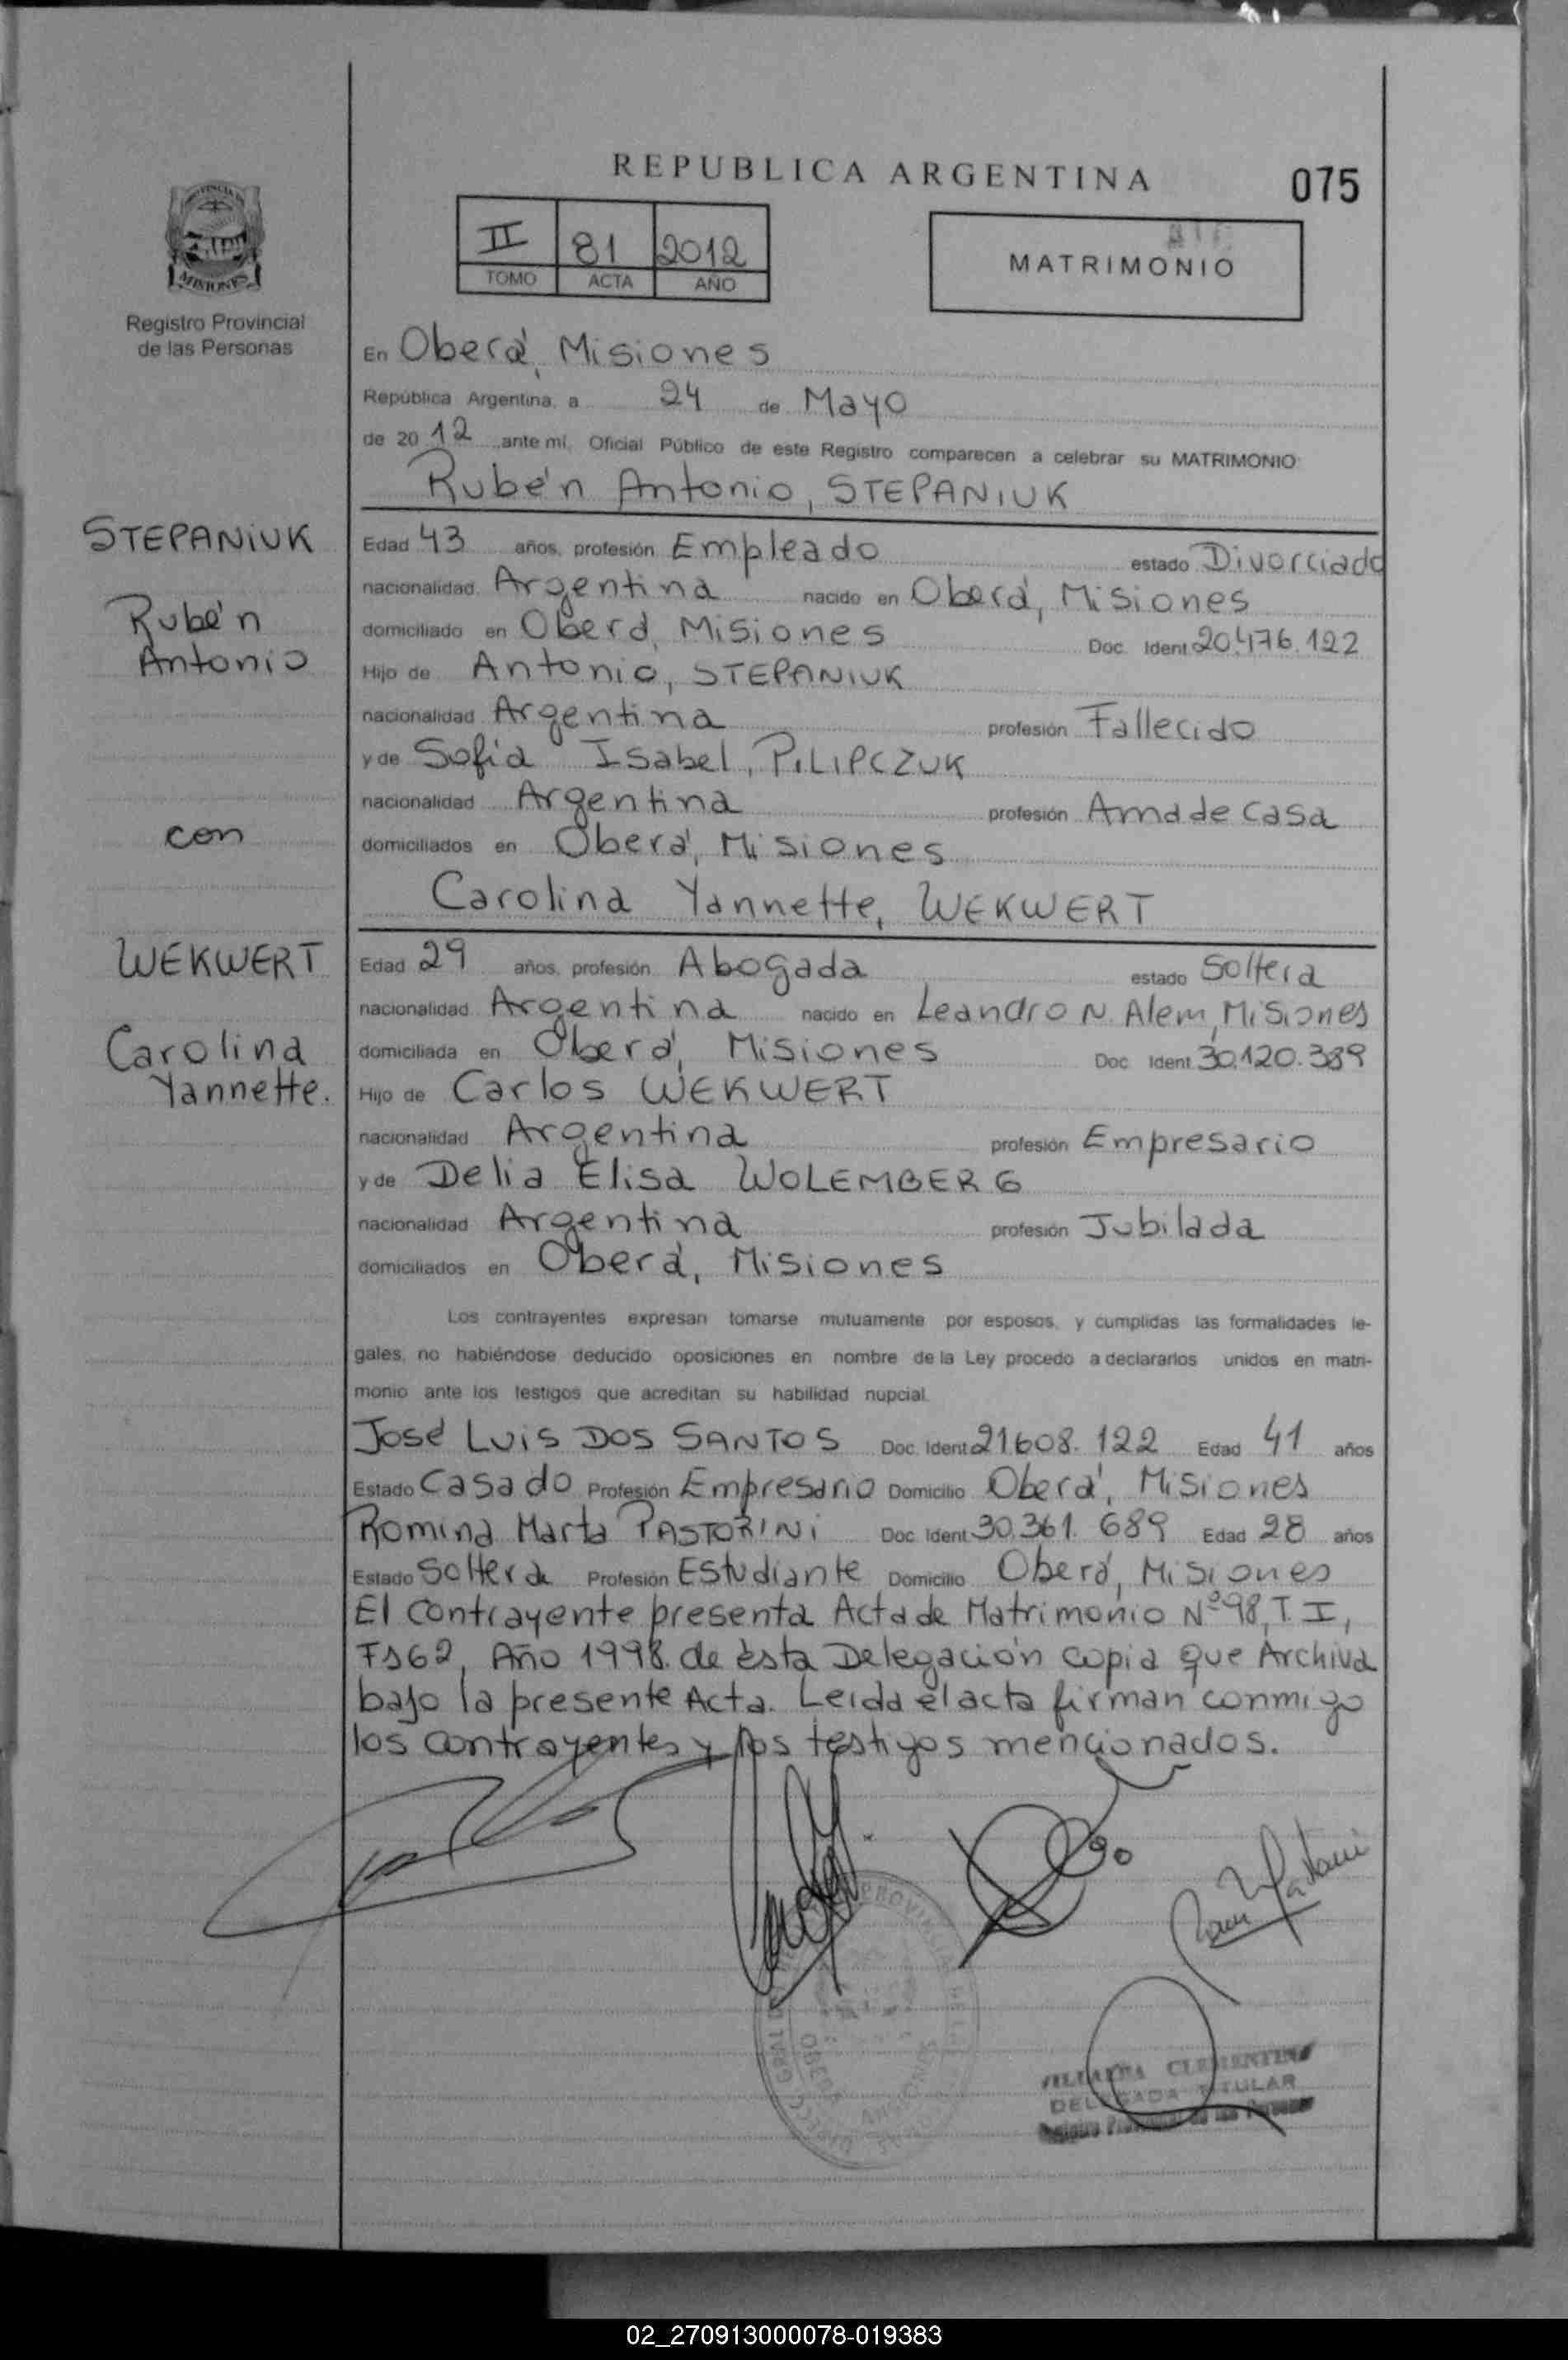 REPUBLICA ARGENTINA
075
II 81 2012
TOMO ACTA AÑO
MATRIMONIO
MISIONES
Registro Provincial
de las Personas
En Oberá, Misiones
República Argentina, a 24 de Mayo
de 20 12 ante mí, Oficial Público de este Registro comparecen a celebrar su MATRIMONIO:
Rubén Antonio, STEPANIUK
STEPANIUK
Rubén
Antonio
Edad 43 años, profesión Empleado estado Divorciado
nacionalidad Argentina nacido en Oberá, Misiones
domiciliado en Oberá, Misiones Doc. Ident. 20.476.122
Hijo de Antonio, STEPANIUK
nacionalidad Argentina profesión Fallecido
y de Sofía Isabel, PILIPCZUK
nacionalidad Argentina profesión Ama de casa
domiciliados en Oberá, Misiones
con
Carolina Yannette, WEKWERT
WEKWERT
Carolina
Yannette.
Edad 29 años, profesión Abogada estado Soltera
nacionalidad Argentina nacido en Leandro N. Alem, Misiones
domiciliada en Oberá, Misiones Doc. Ident. 30.120.389
Hijo de Carlos WEKWERT
nacionalidad Argentina profesión Empresario
y de Delia Elisa WOLEMBERG
nacionalidad Argentina profesión Jubilada
domiciliados en Oberá, Misiones
Los contrayentes expresan tomarse mutuamente por esposos, y cumplidas las formalidades le-
gales, no habiéndose deducido oposiciones en nombre de la Ley procedo a declararlos unidos en matri-
monio ante los testigos que acreditan su habilidad nupcial.
José Luis DOS SANTOS Doc. Ident. 21608.122 Edad 41 años
Estado Casado Profesión Empresario Domicilio Oberá, Misiones
Romina Marta PASTORINI Doc. Ident. 30.361.689 Edad 28 años
Estado Soltera Profesión Estudiante Domicilio Oberá, Misiones
El contrayente presenta Acta de Matrimonio Nº 98, T. I,
Fs 62, Año 1998. de ésta Delegación copia que Archiva
bajo la presente Acta. Leida el acta firman conmigo
los contrayentes y los testigos mencionados.
OBERÁ
MISIONES
VILLALBA CLEMENTINA
DELEGADA TITULAR
Registro Provincial de las Personas
02_270913000078-019383